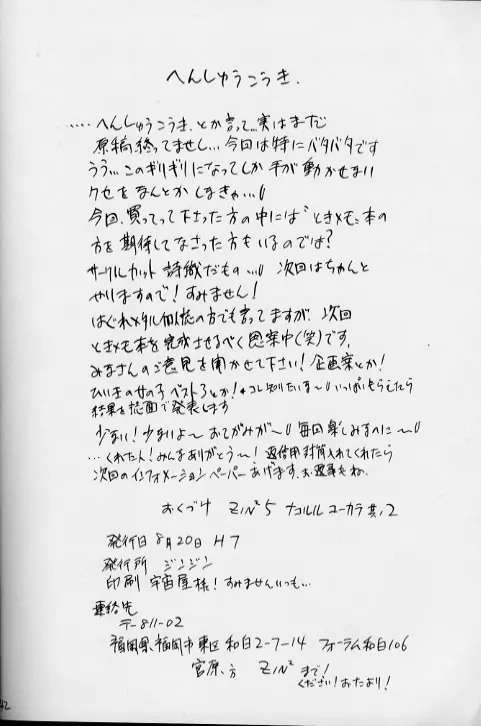 へんしゅうこうき.
....へんしゅうこうき.とか言って...実はまだ
原稿終ってませし...今回は特にバタバタです
うう...このギリギリになってしか手が動かせまい
クセをなんとかしなきゃ...
今回、買ってって下さった方の中には"ときメモ"本の
方を期待してなさった方もいるのでは?
サークルカット詩織だもの...次回はちゃんと
やりますので!すみません!
はぐれメタルの方でも言ってますが、次回
ときメモ本を完成させるべく思案中(笑)です。
みなさんのご意見を聞かせて下さい!企画案とか!
ひいきの女の子ベスト3とか!コレ知りたいま〜いっぱいもらえたら
結果を誌面で発表します
少ない!少ないよ〜おてがみが〜毎回楽しみなのに〜
...くれた人!みんなありがとう〜!返信用封筒入れてくれたら
次回のインフォメーションペーパーあげます。お返事もね。
おくづけ ZIN² 5 ナコルル ユーカラ 其ノ2
発行日 8月20日 H7
発行所 ジンジン
印刷 宇宙屋様!すみませんいつも...
連絡先
〒811-02
福岡県福岡市東区和白2-7-14 フォーラム和白106
宮原方 ZIN² まで!
ください!おたより!
42